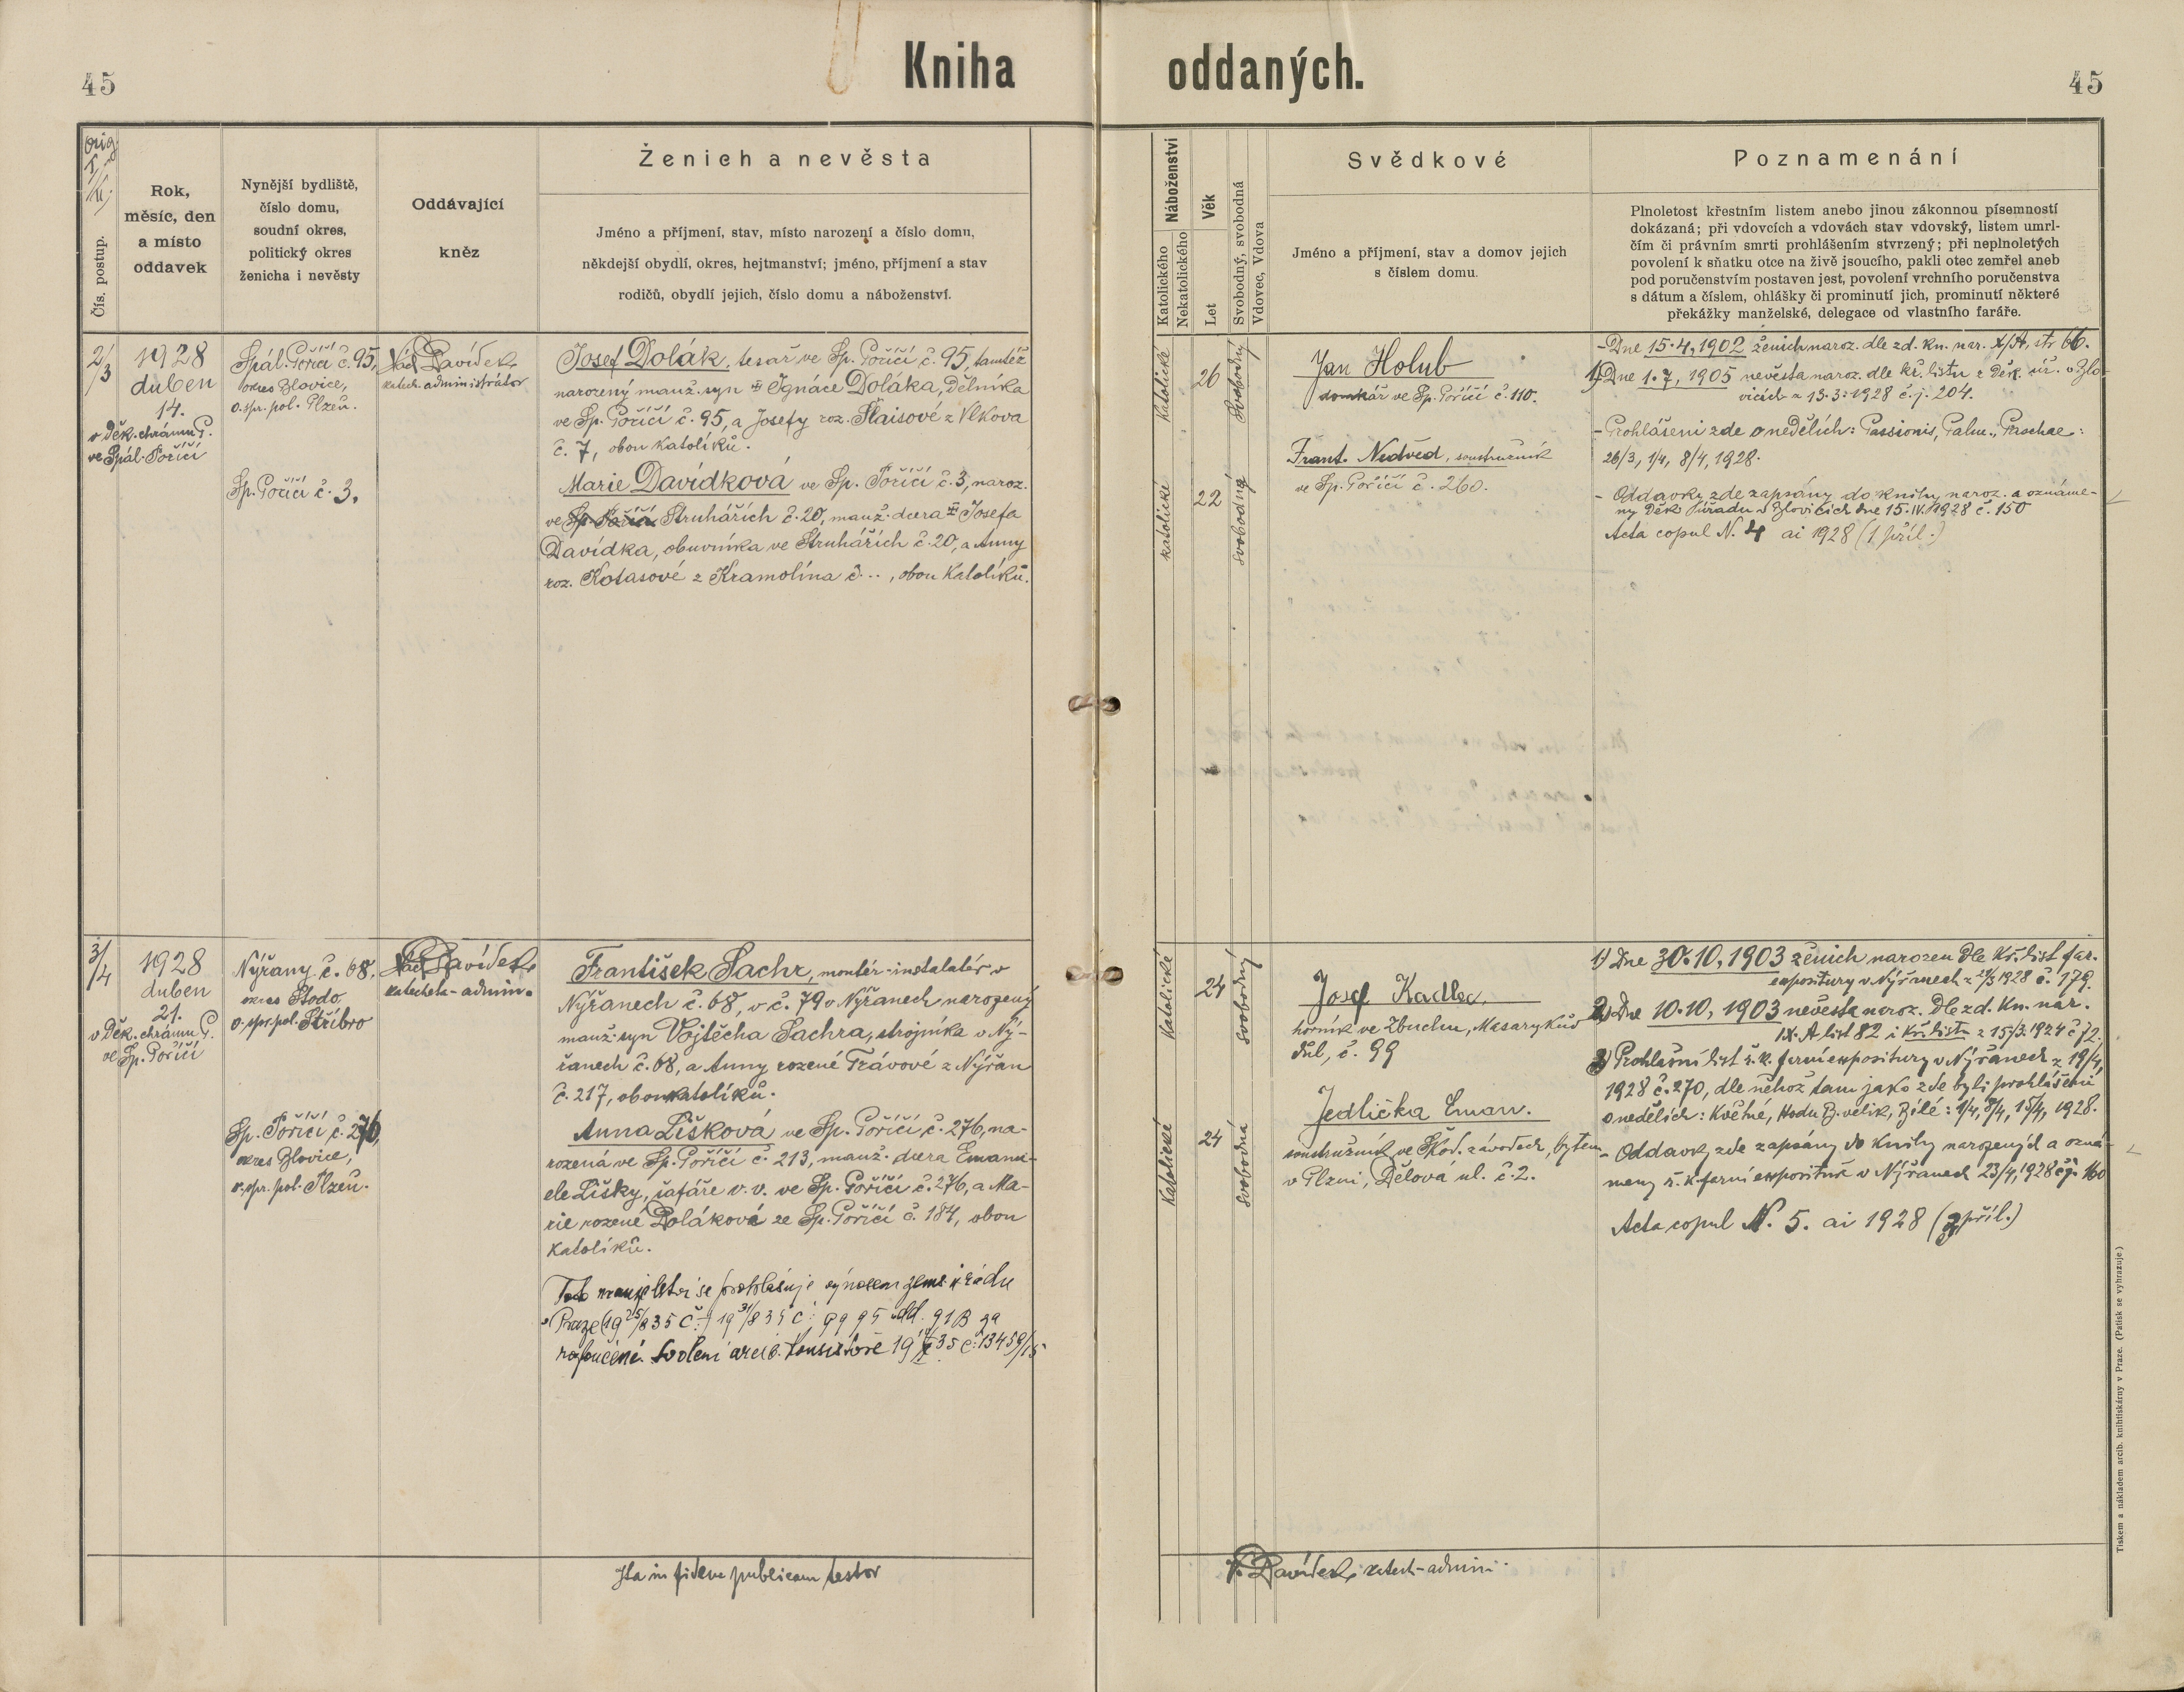 45
Kniha oddaných.
45
orig.
Čís. postup.
Rok,
měsíc, den
a místo
oddavek
Nynější bydliště,
číslo domu,
soudní okres,
politický okres
ženicha i nevěsty
Oddávající
kněz
Ženich a nevěsta
Jméno a příjmení, stav, místo narození a číslo domu,
někdejší obydlí, okres, hejtmanství; jméno, příjmení a stav
rodičů, obydlí jejich, číslo domu a náboženství.
Náboženství
Katolického
Nekatolického
Věk
Let
Svobodný, svobodná
Vdovec, Vdova
Svědkové
Jméno a příjmení, stav a domov jejich
s číslem domu.
Poznamenání
Plnoletost křestním listem anebo jinou zákonnou písemností
dokázaná; při vdovcích a vdovách stav vdovský, listem umrl-
čím či právním smrti prohlášením stvrzený; při neplnoletých
povolení k sňatku otce na živě jsoucího, pakli otec zemřel aneb
pod poručenstvím postaven jest, povolení vrchního poručenstva
s dátum a číslem, ohlášky či prominutí jich, prominutí některé
překážky manželské, delegace od vlastního faráře.
2/3
1928
duben
14.
v Děk. chrámu P.
ve Spál. Poříčí
Spál. Poříčí č. 95,
okres Blovice,
o. spr. pol. Plzeň.
Sp. Poříčí č. 3.
Davídek
katech. administrátor
Josef Dolák, tesař ve Sp. Poříčí č. 95, tamtéž
narozený manž. syn Ignáce Doláka, dělníka
ve Sp. Poříčí č. 95, a Josefy roz. Flaisové z Vlkova
č. 7, obou katolíků.
Marie Davídková ve Sp. Poříčí č. 3, naroz.
ve Sp. Poříčí Struhářích č. 20, manž. dcera Josefa
Davídka, obuvníka ve Struhářích č. 20, a Anny
roz. Kotasové z Kramolína č. .., obou katolíků.
katolické
26
svobodný
katolické
22
svobodná
Jan Holub
domkář ve Sp. Poříčí č. 110.
Frant. Nedvěd, soustružník
ve Sp. Poříčí č. 260.
- Dne 15. 4, 1902 ženich naroz. dle zd. kn. nar. X/A, str. 66.
1) Dne 1. 7, 1905 nevěsta naroz. dle kř. listu z Děk. úř. v Blo-
vicích z 13. 3. 1928 č. j. 204.
- Prohlášeni zde o nedělích: Passionis, Palm., Paschae:
26/3, 1/4, 8/4, 1928.
- Oddavky zde zapsány do knihy naroz. a oznáme-
ny Děk. úřadu v Blovicích dne 15. IV. 1928 č. 150
Acta copul N. 4 ai 1928 (1 příl.)
3/4
1928
duben
21.
v Děk. chrámu P.
ve Sp. Poříčí
Nýřany č. 68,
okres Stodo,
o. spr. pol. Stříbro
Sp. Poříčí č. 276,
okres Blovice,
o. spr. pol. Plzeň.
Davídek
katecheta-admin.
František Sachr, montér-instalatér v
Nýřanech č. 68, v č. 79 v Nýřanech narozený
manž. syn Vojtěcha Sachra, strojníka v Ný-
řanech č. 68, a Anny rozené Trávové z Nýřan
č. 217, obou katolíků.
Anna Lišková ve Sp. Poříčí č. 276, na-
rozená ve Sp. Poříčí č. 213, manž. dcera Emanu-
ele Lišky, šafáře v. v. ve Sp. Poříčí č. 276, a Ma-
rie rozené Dolákové ze Sp. Poříčí č. 184, obou
katolíků.
Toto manželství se prohlašuje výnosem zems. úřadu
v Praze
rozloučené. Svolení arcib. konsistoře
Katolické
24
svobodný
Katolické
24
svobodná
Josef Kadlec,
horník ve Zbuchu, Masarykův
důl, č. 99
Jedlička Eman.
soustružník ve Škod. závodech, bytem
v Plzni, Dělová ul. č. 2.
1) Dne 30. 10, 1903 ženich narozen dle kř. list far.
expositury v Nýřanech z 21/3 1928 č. 179.
2) Dne 10. 10, 1903 nevěsta naroz. dle zd. kn. nar.
IX. A list 82 i kř. listu z 15/3. 1924 č. 72.
3) Prohlašní list ř. k. farní expositury v Nýřanech z 19/4,
1928 č. 270, dle něhož tam jako zde byli prohlášeni
o nedělích: Květné, Hodu B. velik, Bílé: 1/4, 8/4, 15/4, 1928.
- Oddavky zde zapsány do knihy narozených a ozná-
meny ř. k. farní expositurě v Nýřanech 23/4, 1928 č. j. 160
Acta copul N. 5. ai 1928 (3 příl.)
Ita in fidem publicam testor
V. Davídek, katech-admini.
Tiskem a nákladem arcib. knihtiskárny v Praze. (Patisk se vyhrazuje.)